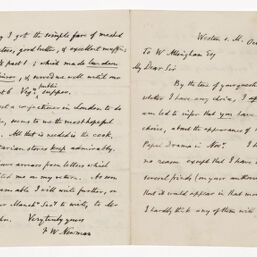 I got the simple fare of mealed
good butter, & excellent muffin
past 1; which made luncheon
dinner, & served me well until
public
6 Veg.n supper.
a confectioner in London to do
, seems to me the most hopeful
. All that is needed is the cook.
-tarian stores keep admirably.
have arrears from letters which
me on my return. As soon
I will write further, or
Manch.r Sec.y to write, to Mr
Very truly yours
F W Newman
Weston s. M. Oct
To W Allingham Esq
My Dear Sir
By the tone of your question
whether I have any choice, I
am led to infer that you have
choice, about the appearance of
Paper Drama in Nov.r. I have
no reason except that I have
several friends (on your
that it would appear in that
I hardly think any of them will